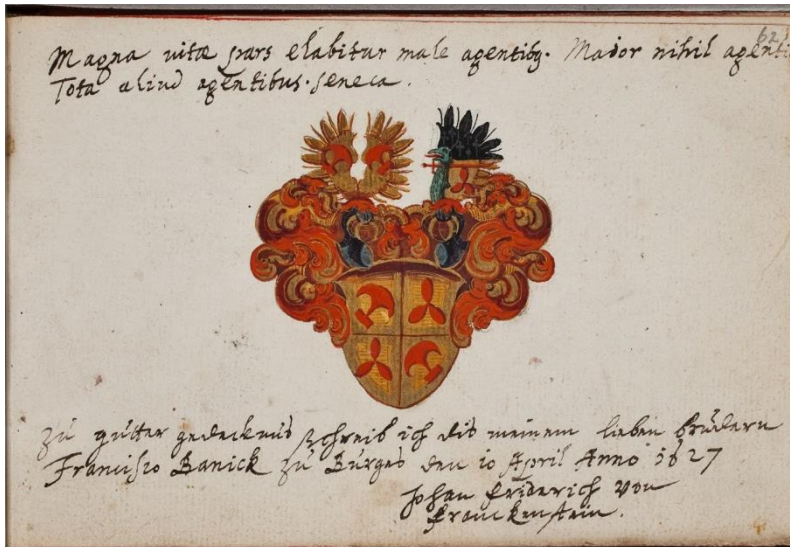 62
Magna vitæ pars elabitur male agentibq. Maior nihil agenti
Tota aliud agentibus. Seneca.
Zu gutter gedecknus schreib ich dis meinem lieben brudern
Francisco Banick zu Burges den 10 April Anno 1627
Johan Friderich von
Franckenstein.